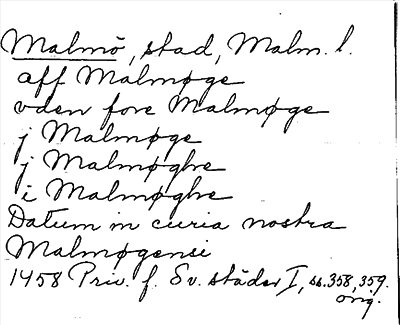 Malmö, stad, Malm. l.
aff Malmøge
vden fore Malmøge
j Malmøge
j Malmøghe
i Malmøghe
Datum in curia nostra
Malmøgensi
1458 Priv. f. Sv. städer I, ss. 358, 359.
orig.